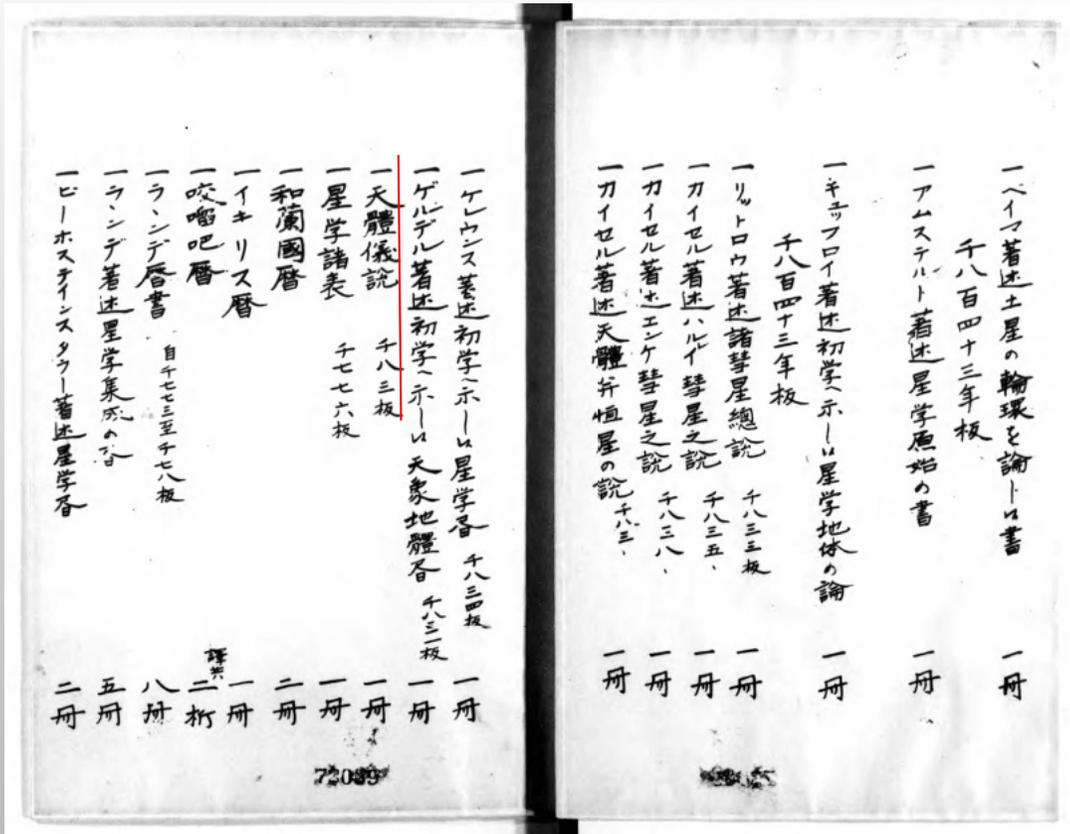 一ペイマ著述土星の輪環を論トロ書 一冊
千八百四十三年板
一アムステルト著述星学原始の書 一冊
一キュッフロイ著述初学ヘ示ーロ星学地体の論 一冊
千八百四十三年板
一リットロウ著述諸彗星總説 千八三三板 一冊
一カイセル著述ハルレイ彗星之説 千八三五、 一冊
一カイセル著述エンケ彗星之説 千八三八、 一冊
一カイセル著述天體弁恒星の説 千八三、 一冊
一ケレウンス著述初学ヘ示ーロ星学書 千八三四板 一冊
一ゲルデル著述初学ヘ示ーロ天象地體書 千八三二板 一冊
一天體儀説 千八三板 一冊
一星学諸表 千七七六板 一冊
一和蘭國暦 二冊
一イキリス暦 一冊
一咬𠺕吧暦 譯共 二桁
一ラヽンデ暦書 自千七七三至千七八板 八冊
一ラヽンデ著述星学集成の書 五冊
一ビーホステインスタラー著述星学書 二冊
73039